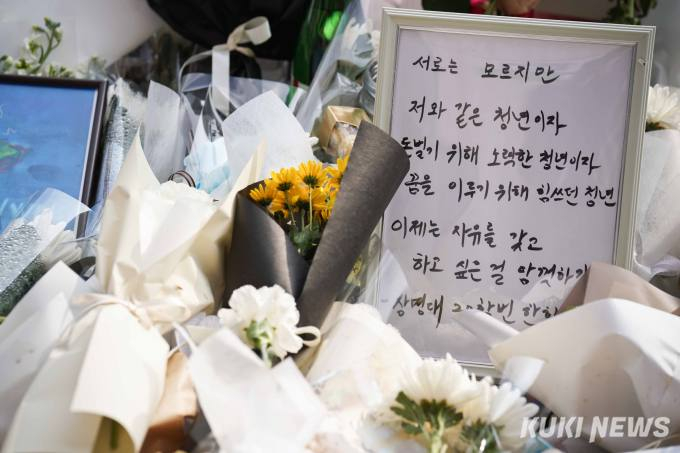 서로는 모르지만
저와 같은 청년이자
돈벌기 위해 노력한 청년이자
꿈을 이루기 위해 힘쓰던 청년
이제는 자유를 갖고
하고 싶은 걸 맘껏하
상명대 학번 한
KUKI NEWS